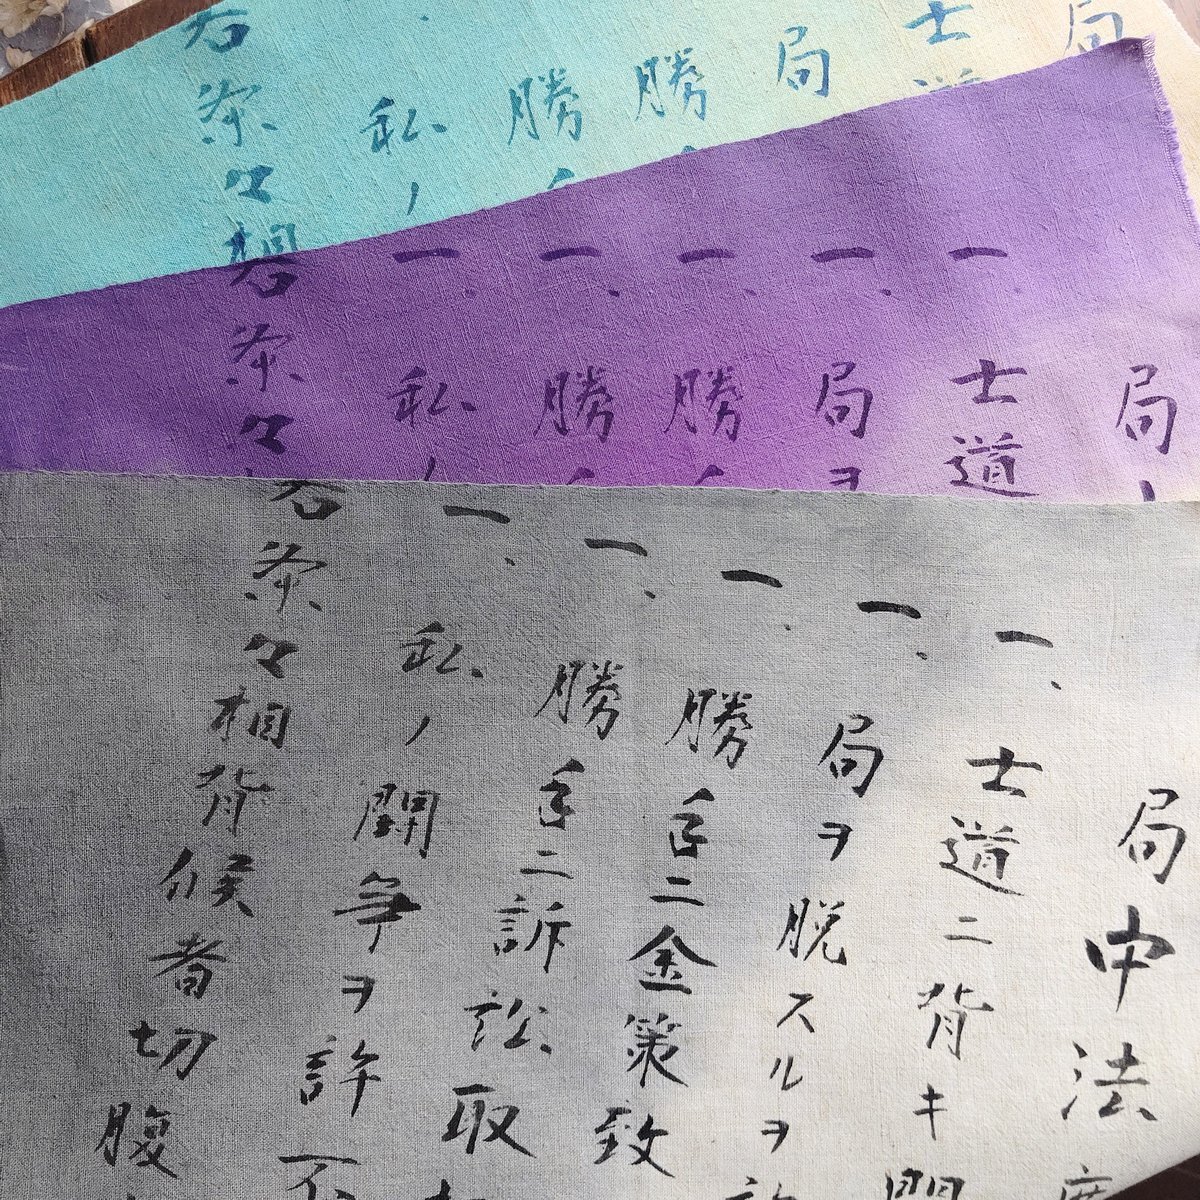 局
士道
局
勝
勝
私ノ
右条々相
局
一、士道
一、局ヲ
一、勝
一、勝
一、私
右条々
局中法度
一、士道ニ背キ間
一、局ヲ脱スルヲ許
一、勝手ニ金策致
一、勝手ニ訴訟取
一、私ノ闘争ヲ許不
右条々相背候者切腹